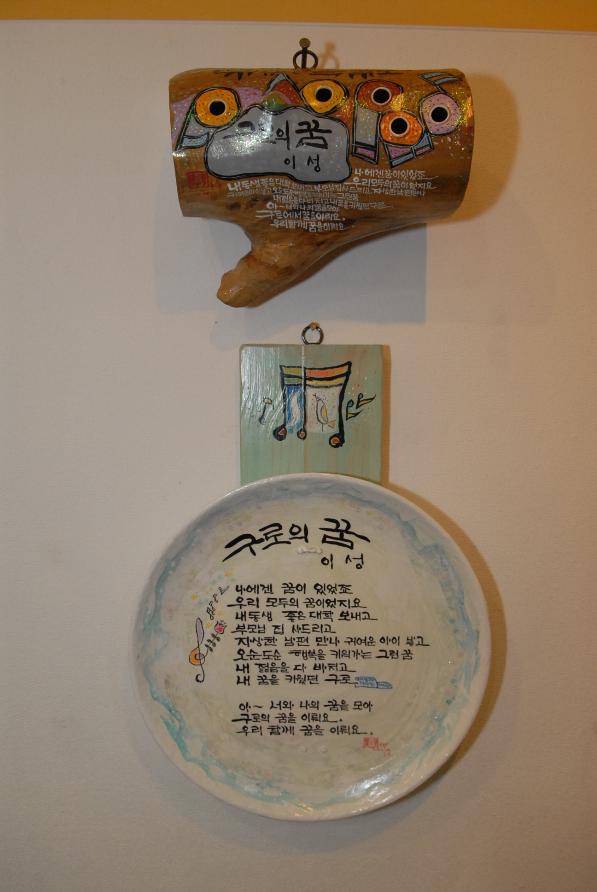 구로의 꿈
이성
나에겐 꿈이 있었죠
우리 모두의 꿈이었지요
구로에서 꿈을 이뤄요.
우리 함께 꿈을 이뤄요
구로의 꿈
이성
나에겐 꿈이 있었죠
우리 모두의 꿈이었지요
내 동생 좋은 대학 보내고
부모님 집 사드리고
자상한 남편 만나 귀여운 아이 낳고
오순도순 행복을 키워가는 그런 꿈
내 젊음을 다 바치고
내 꿈을 키웠던 구로
아~ 너와 나의 꿈을 모아
구로의 꿈을 이뤄요.
우리 함께 꿈을 이뤄요.